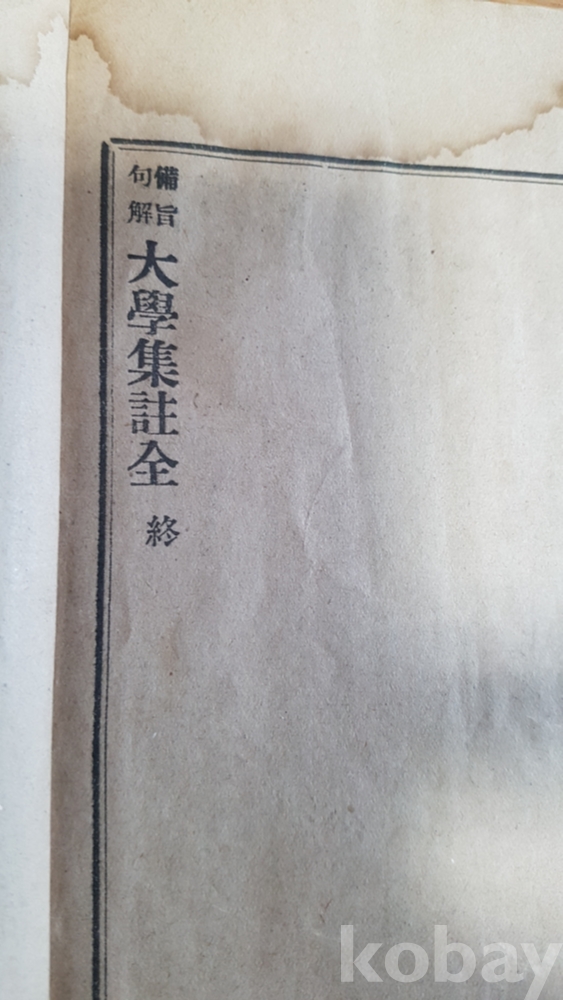 備旨句解大學集註全 終
kobay